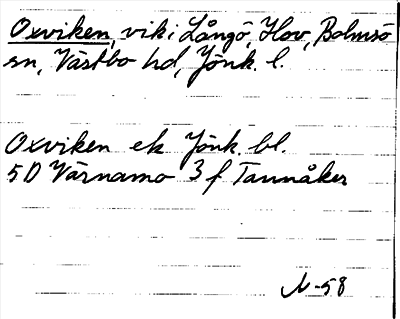 Oxviken, vik i Långö, Hov, Bolmsö
sn, Västbo hd, Jönk. l.
Oxviken ek Jönk. bl.
5D Värnamo 3 f Tannåker
N-58